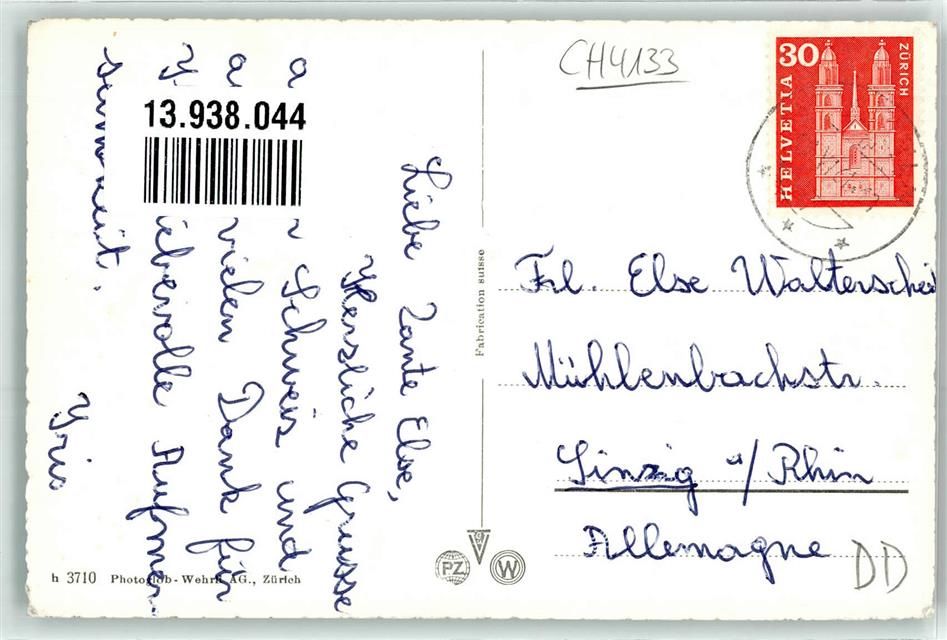 CH4133
30
HELVETIA
ZÜRICH
13.938.044
Liebe Tante Else,
Herzliche Grüsse
a Schweis und
a vielen Dank für
ebevolle Aufmer
samkeit.
Yris
Fabrication suisse
Frl. Else Walterscheid
Mühlenbachstr.
Sinzig a/Rhin
Allemagne
DD
h 3710 Photoglob-Wehrli AG., Zürich
PZ
V
W